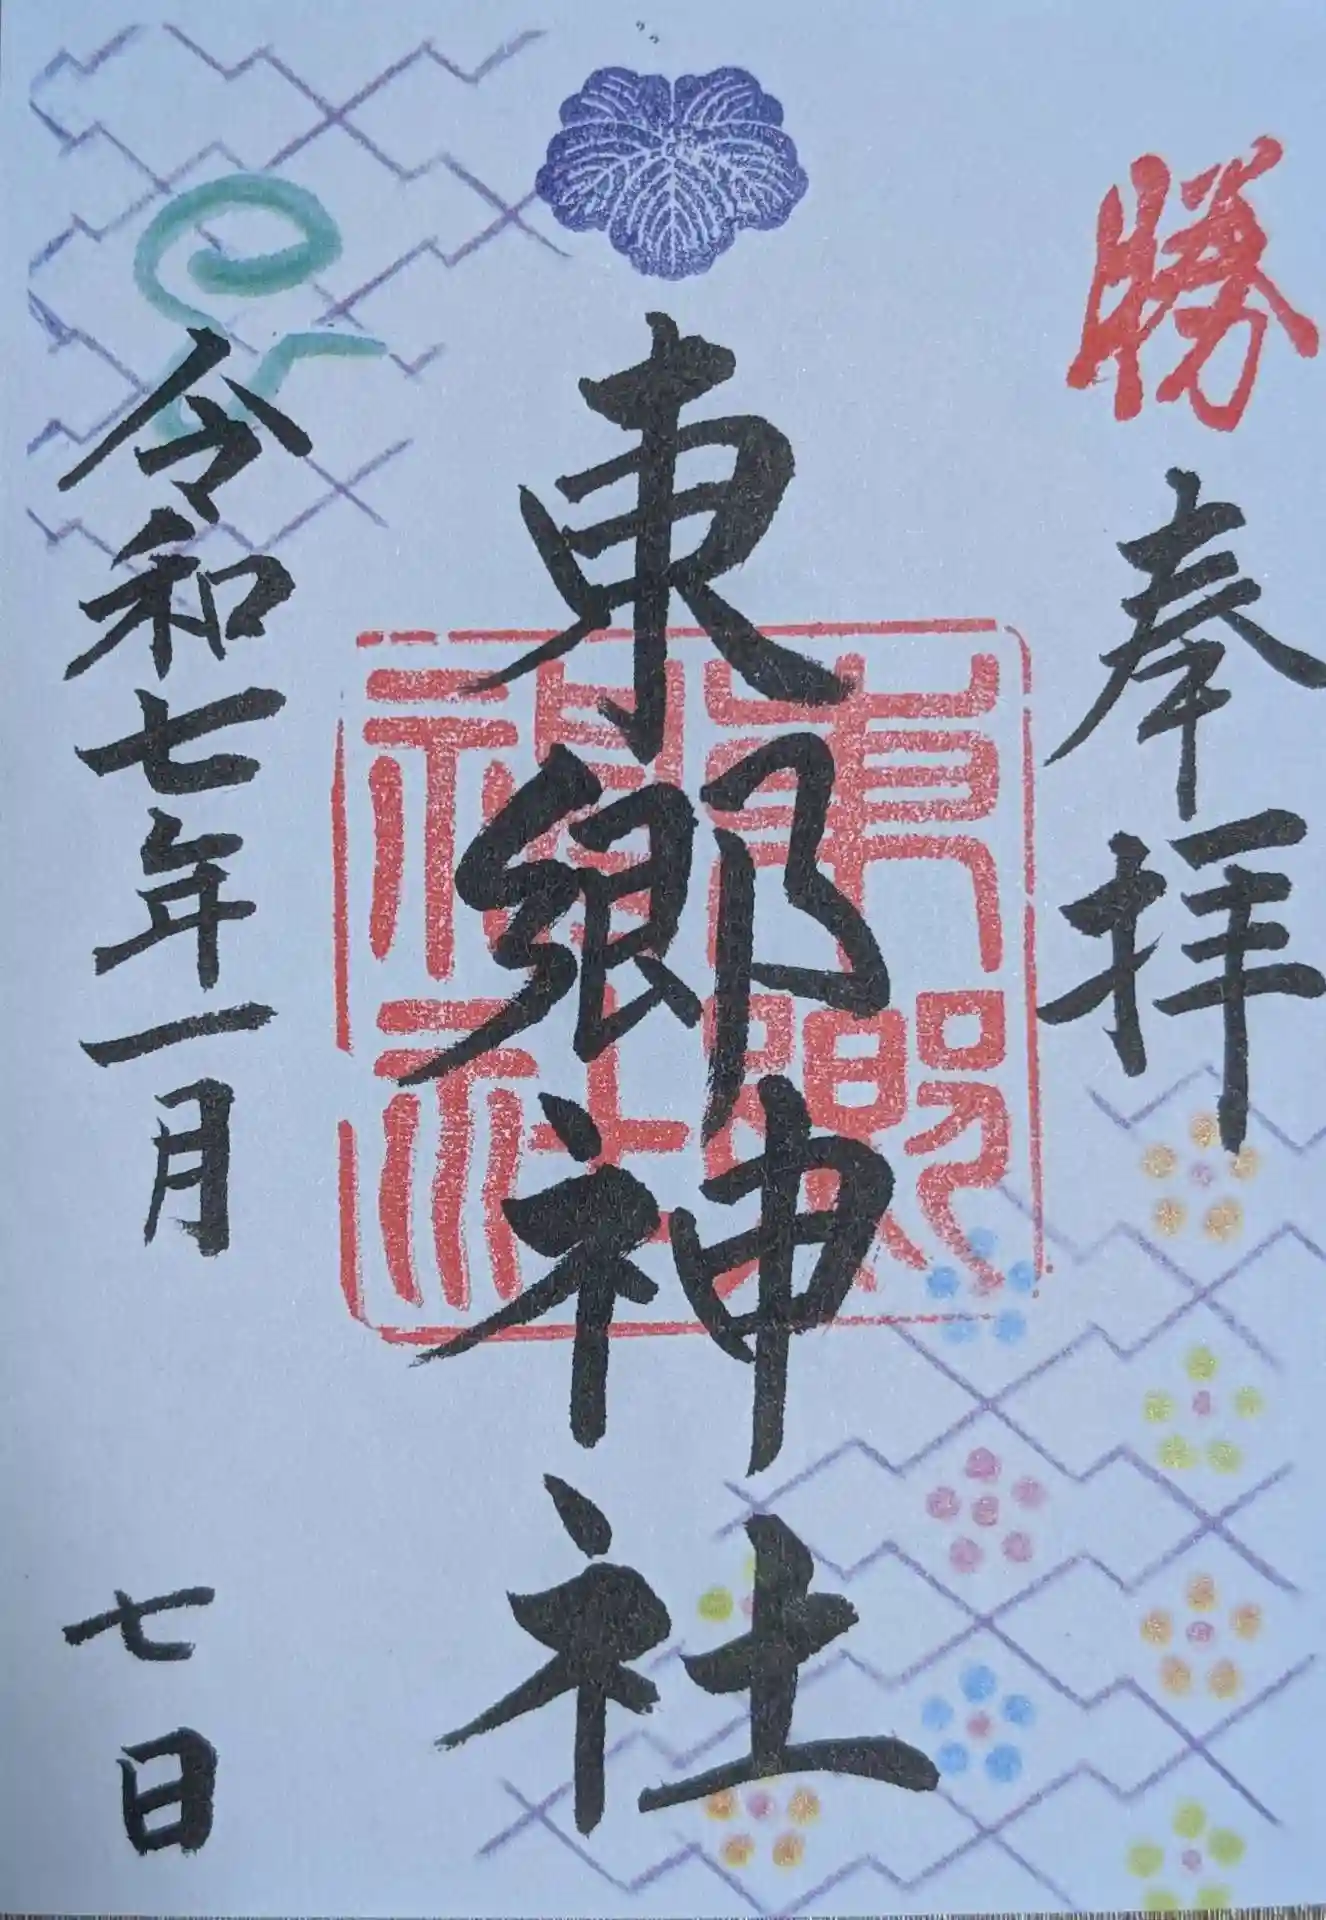 勝
奉拝
東郷神社
東郷神社
令和七年一月
七日